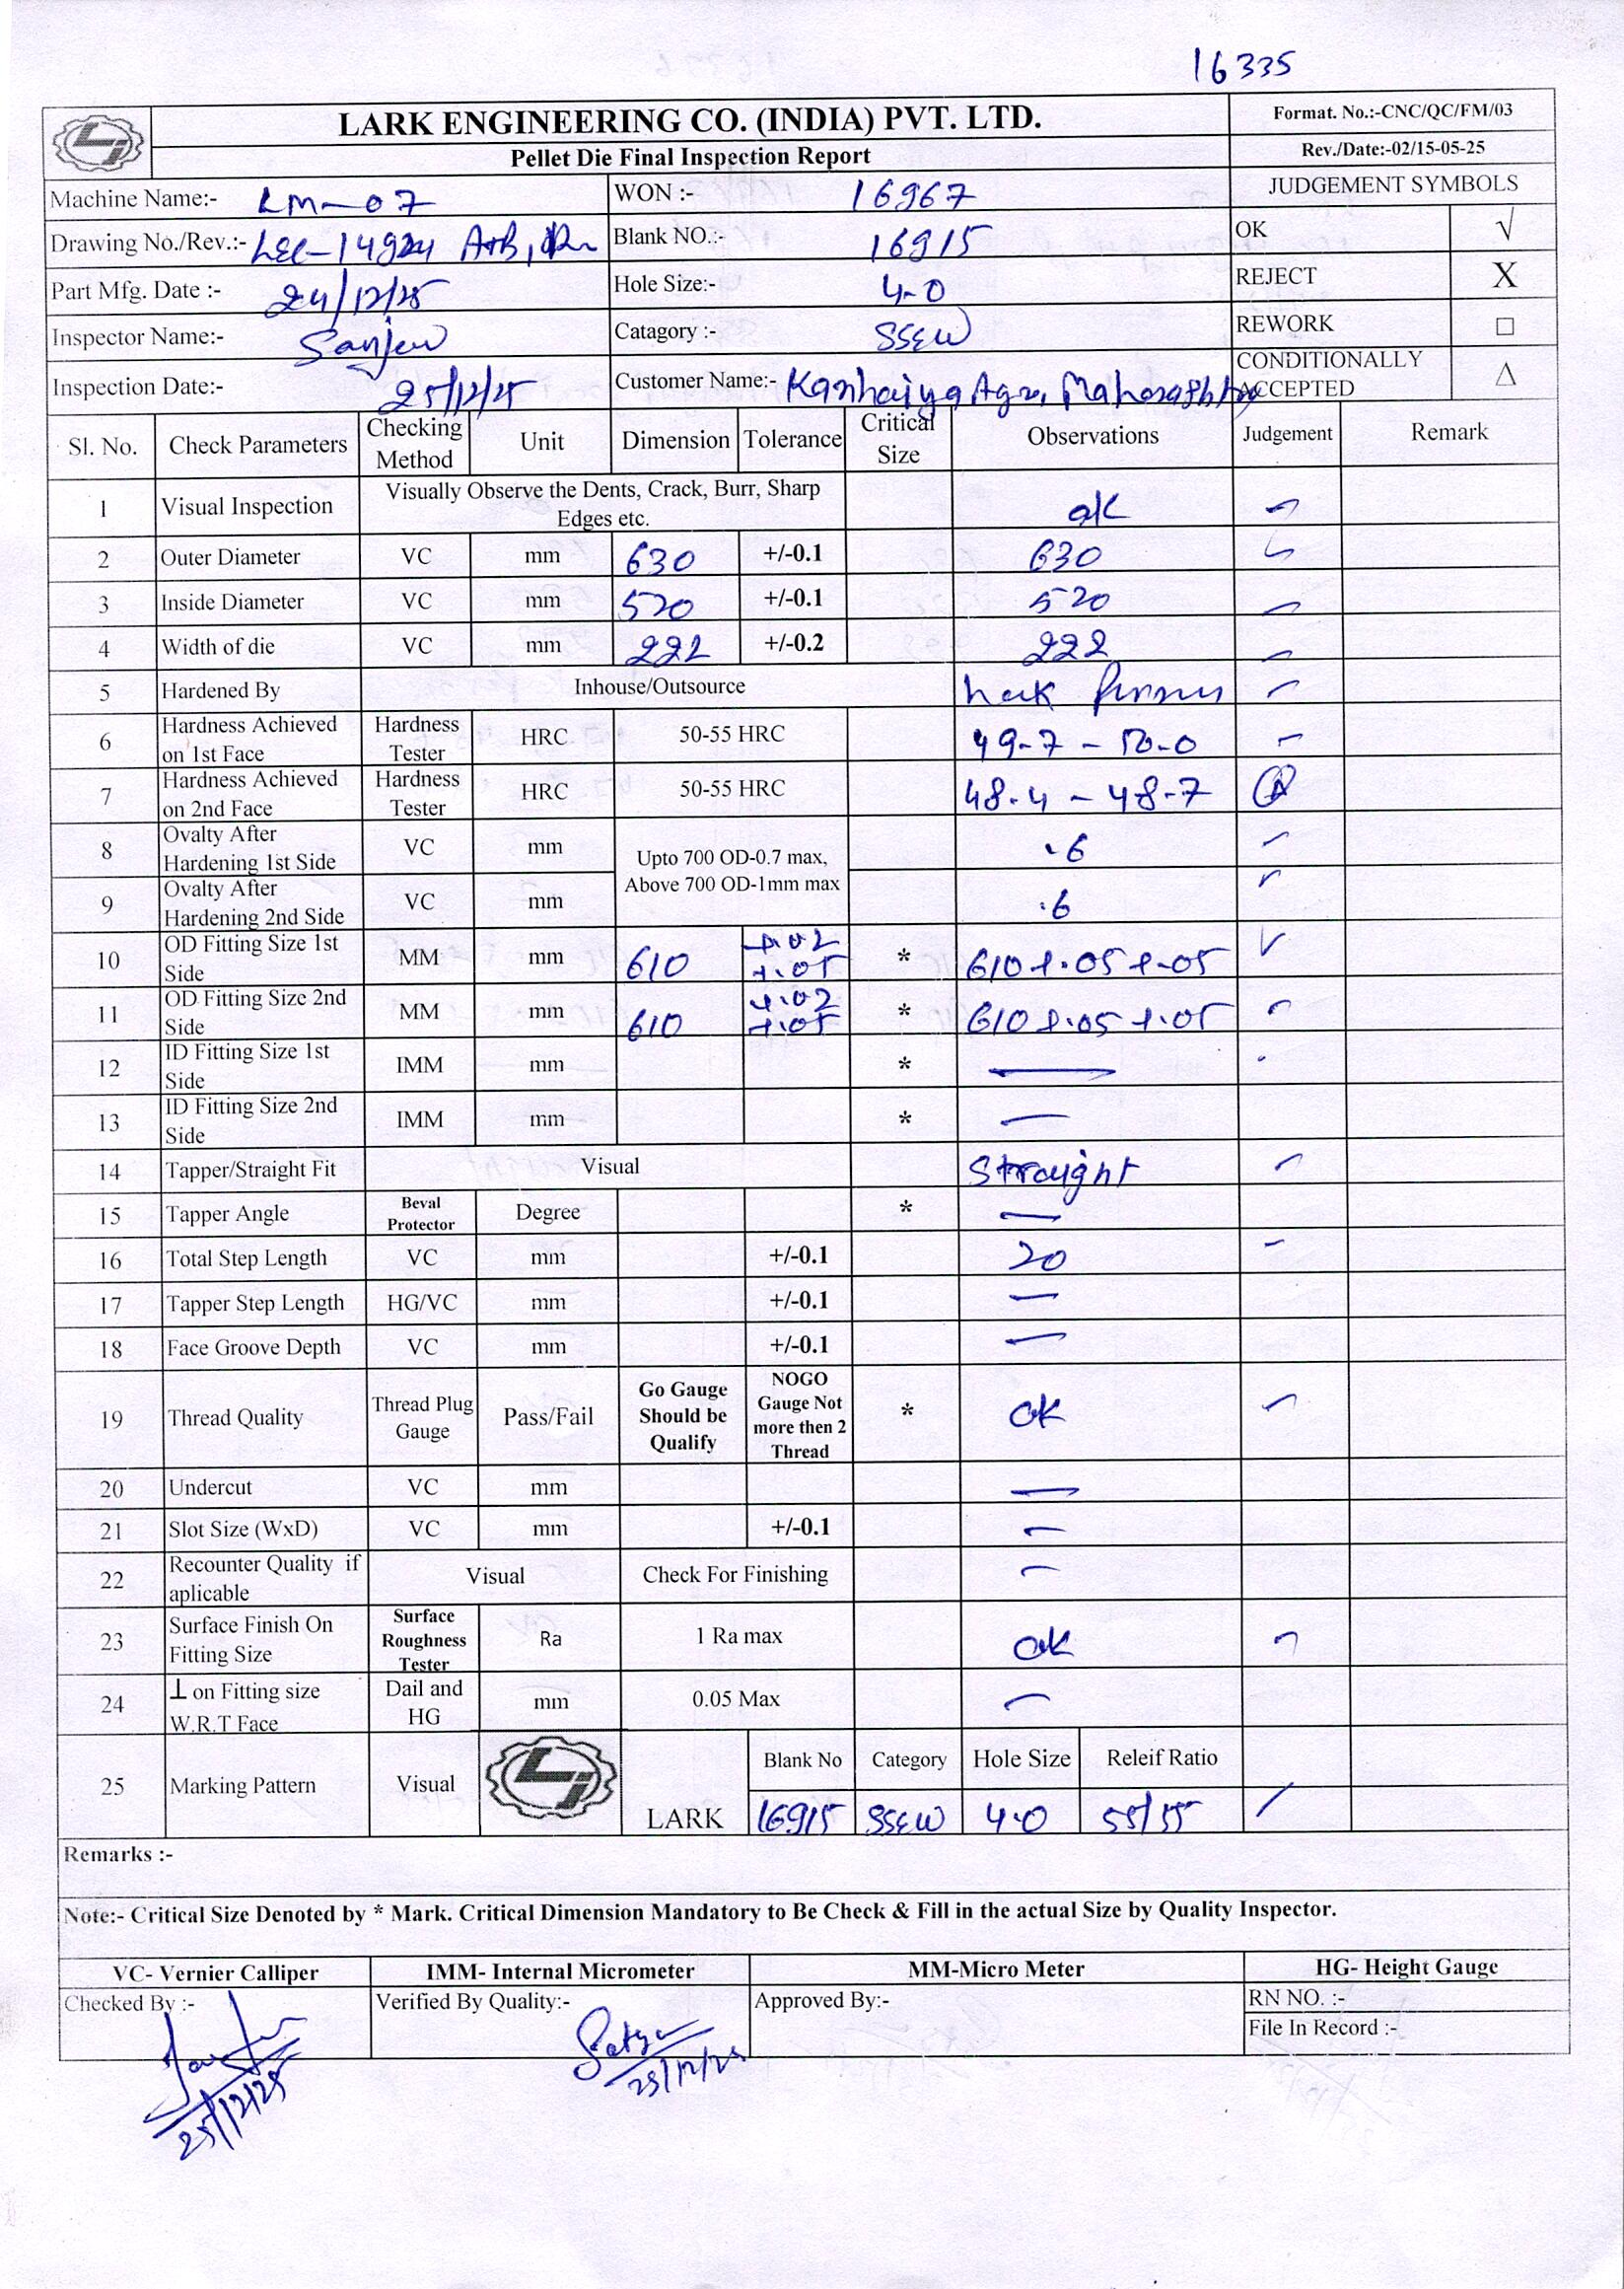 16335
LARK ENGINEERING CO. (INDIA) PVT. LTD.
Format. No.:-CNC/QC/FM/03
Pellet Die Final Inspection Report
Rev./Date:-02/15-05-25
Machine Name:- LM-07 WON :- 16967 JUDGEMENT SYMBOLS
Drawing No./Rev.:- LEC-14924 A+B, Blank NO.:- 16915 OK √
Part Mfg. Date :- 24/12/25 Hole Size:- 4.0 REJECT X
Inspector Name:- Sanjeev Catagory :- SSEW REWORK □
Inspection Date:- 25/12/25 Customer Name:- Kanhaiya Agro, Maharashtra CONDITIONALLY ACCEPTED △
Sl. No. Check Parameters Checking Method Unit Dimension Tolerance Critical Size Observations Judgement Remark
1 Visual Inspection Visually Observe the Dents, Crack, Burr, Sharp Edges etc. ok
2 Outer Diameter VC mm 630 +/-0.1 630
3 Inside Diameter VC mm 520 +/-0.1 520
4 Width of die VC mm 222 +/-0.2 222
5 Hardened By Inhouse/Outsource
6 Hardness Achieved on 1st Face Hardness Tester HRC 50-55 HRC 49-7 - 50-0
7 Hardness Achieved on 2nd Face Hardness Tester HRC 50-55 HRC 48.4 - 48-7
8 Ovalty After Hardening 1st Side VC mm Upto 700 OD-0.7 max, Above 700 OD-1mm max .6
9 Ovalty After Hardening 2nd Side VC mm .6
10 OD Fitting Size 1st Side MM mm 610 +.02 +.05 * 610 +.05 +.05 √
11 OD Fitting Size 2nd Side MM mm 610 +.02 +.05 * 610 +.05 +.05
12 ID Fitting Size 1st Side IMM mm * —
13 ID Fitting Size 2nd Side IMM mm * —
14 Tapper/Straight Fit Visual Straight
15 Tapper Angle Beval Protector Degree * —
16 Total Step Length VC mm +/-0.1 20
17 Tapper Step Length HG/VC mm +/-0.1 —
18 Face Groove Depth VC mm +/-0.1 —
19 Thread Quality Thread Plug Gauge Pass/Fail Go Gauge Should be Qualify NOGO Gauge Not more then 2 Thread * ok
20 Undercut VC mm —
21 Slot Size (WxD) VC mm +/-0.1 —
22 Recounter Quality if aplicable Visual Check For Finishing —
23 Surface Finish On Fitting Size Surface Roughness Tester Ra 1 Ra max ok
24 ⊥ on Fitting size W.R.T Face Dail and HG mm 0.05 Max —
25 Marking Pattern Visual LARK Blank No Category Hole Size Releif Ratio
16915 SSEW 4.0 55/55
Remarks :-
Note:- Critical Size Denoted by * Mark. Critical Dimension Mandatory to Be Check & Fill in the actual Size by Quality Inspector.
VC- Vernier Calliper IMM- Internal Micrometer MM-Micro Meter HG- Height Gauge
Checked By :- Verified By Quality:- Approved By:- RN NO. :-
File In Record :-
25/12/25
25/12/25